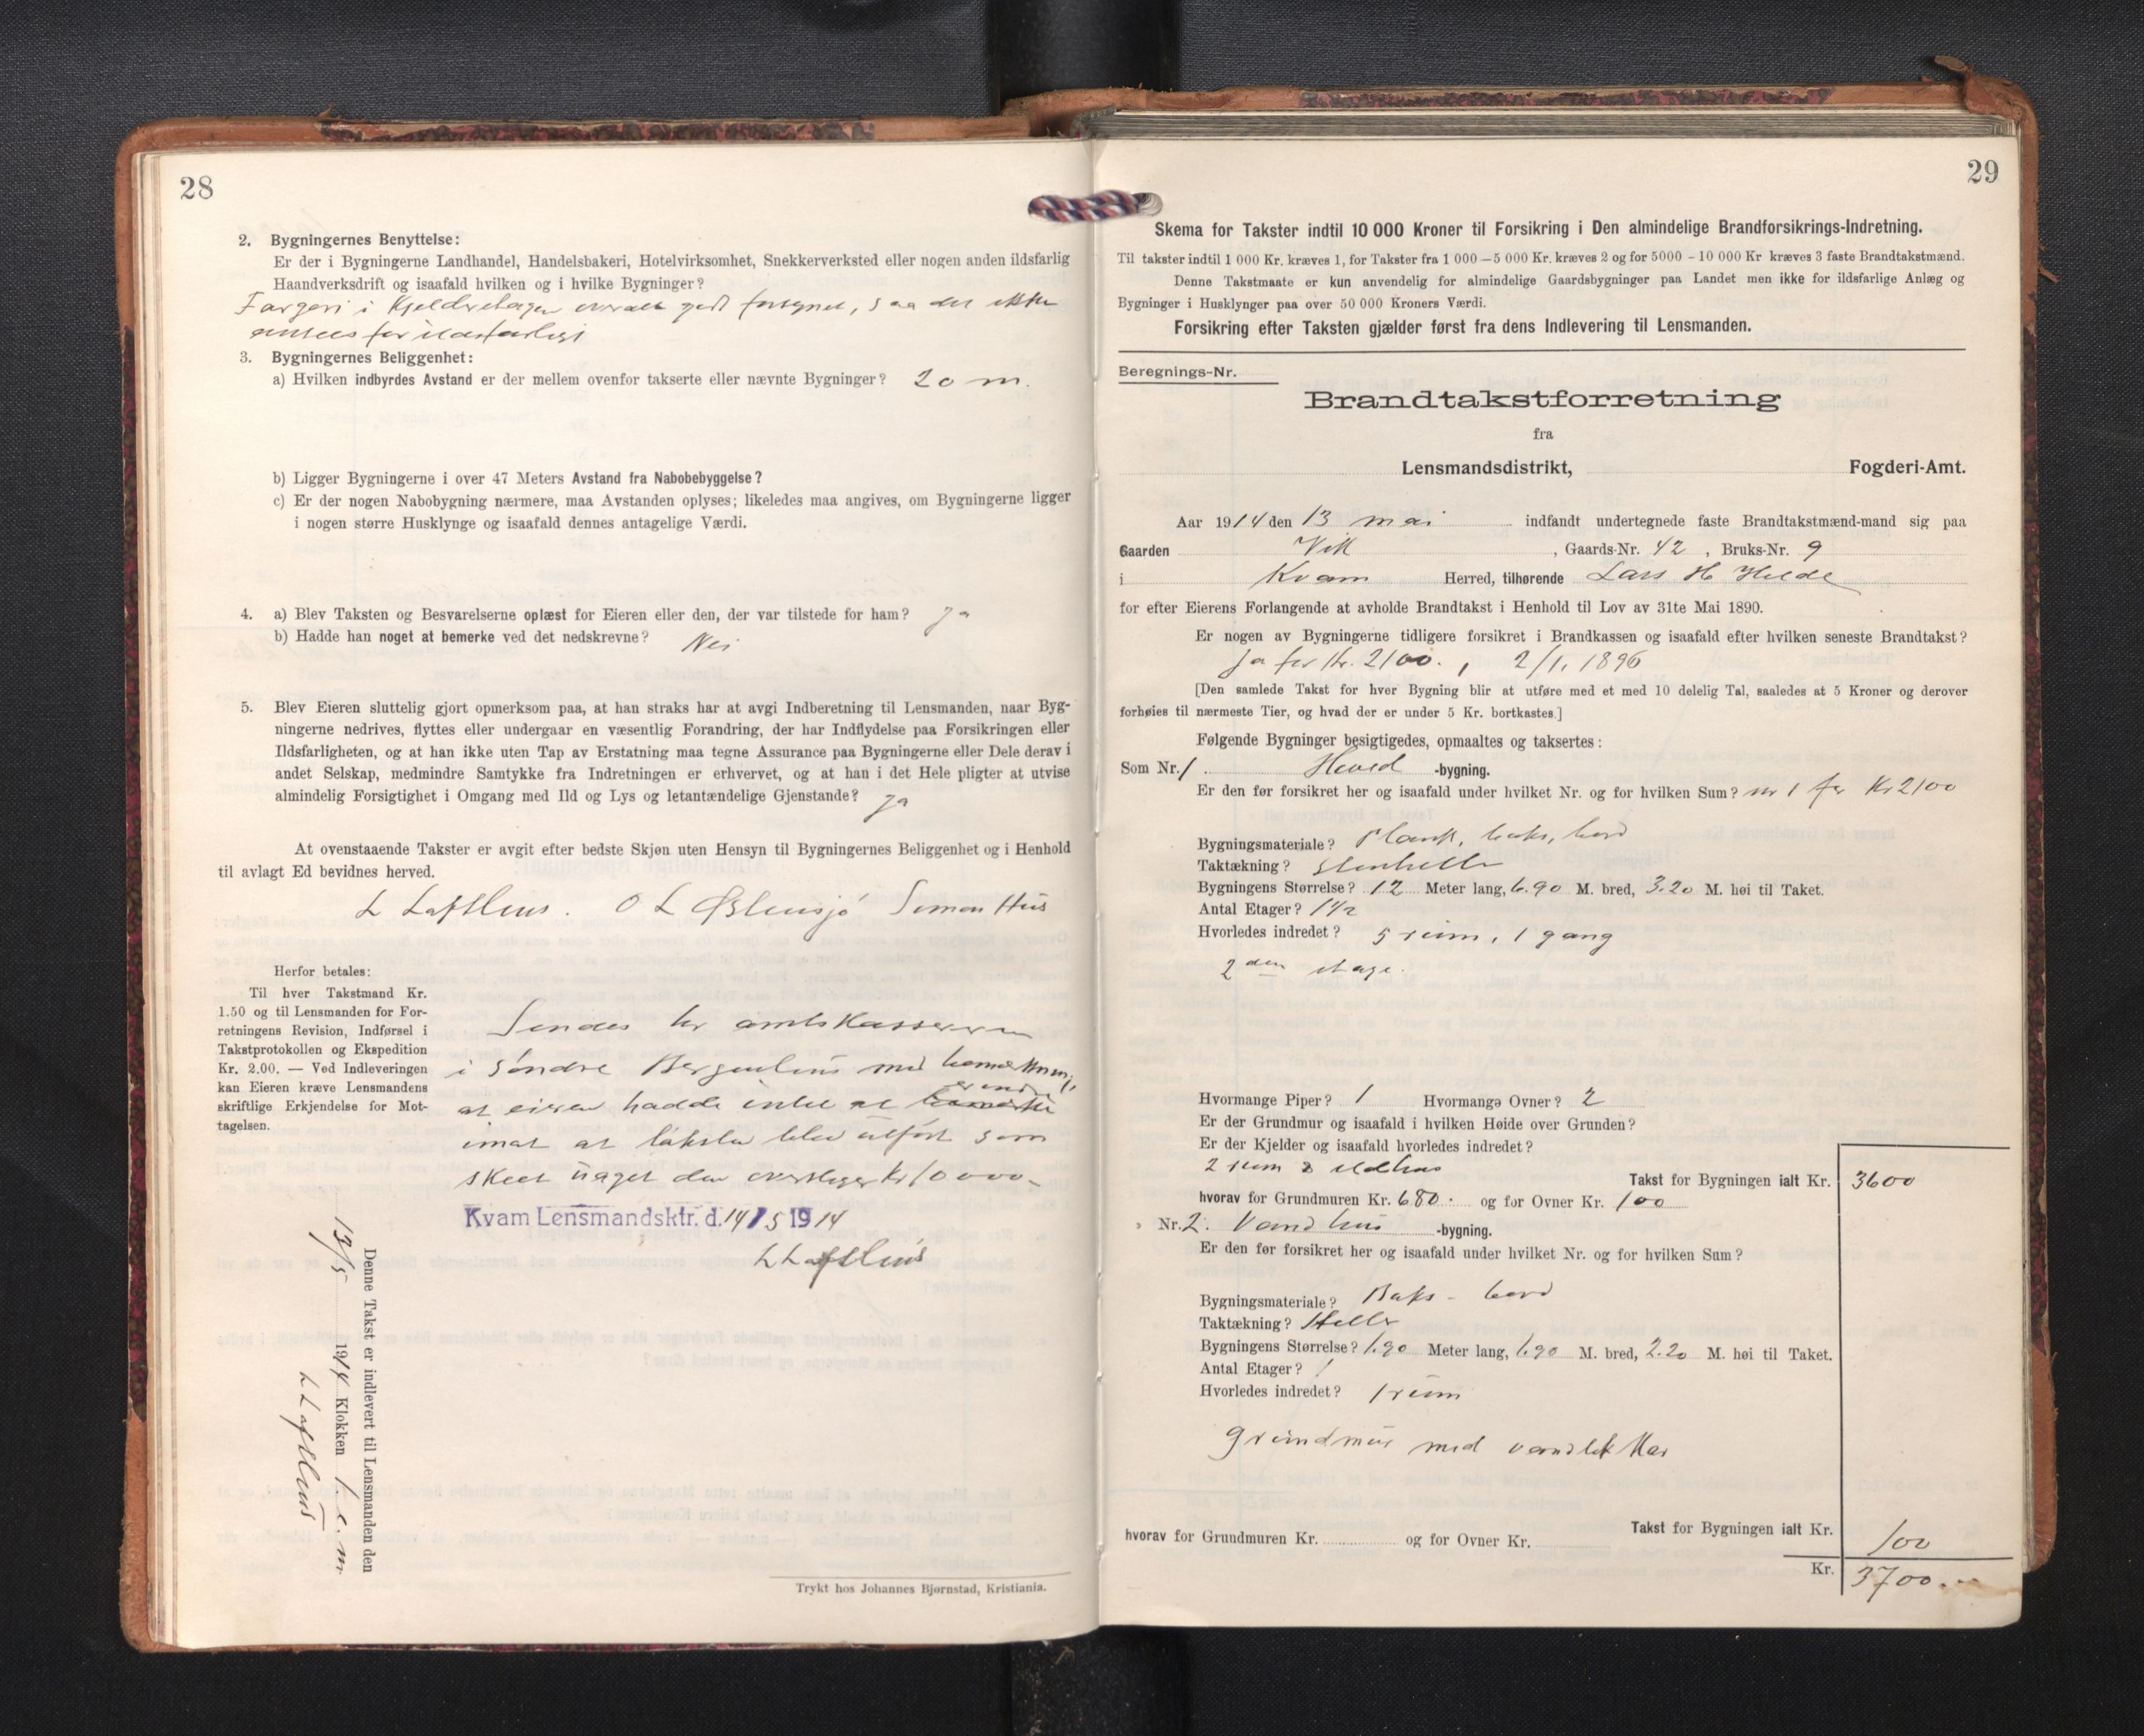 28
2. Bygningernes Benyttelse:
Er der i Bygningerne Landhandel, Handelsbakeri, Hotelvirksomhet, Snekkerverksted eller nogen anden ildsfarlig
Haandverksdrift og isaafald hvilken og i hvilke Bygninger?
Fargeri i Kjelderetagen overalt godt forsynet, saa det ikke
ansees for ildsfarligt
3. Bygningernes Beliggenhet:
a) Hvilken indbyrdes Avstand er der mellem ovenfor takserte eller nævnte Bygninger? 20 m.
b) Ligger Bygningerne i over 47 Meters Avstand fra Nabobebyggelse?
c) Er der nogen Nabobygning nærmere, maa Avstanden oplyses; likeledes maa angives, om Bygningerne ligger
i nogen større Husklynge og isaafald dennes antagelige Værdi.
4. a) Blev Taksten og Besvarelserne oplæst for Eieren eller den, der var tilstede for ham? Ja
b) Hadde han noget at bemerke ved det nedskrevne? Nei
5. Blev Eieren sluttelig gjort opmerksom paa, at han straks har at avgi Indberetning til Lensmanden, naar Byg-
ningerne nedrives, flyttes eller undergaar en væsentlig Forandring, der har Indflydelse paa Forsikringen eller
Ildsfarligheten, og at han ikke uten Tap av Erstatning maa tegne Assurance paa Bygningerne eller Dele derav i
andet Selskap, medmindre Samtykke fra Indretningen er erhvervet, og at han i det Hele pligter at utvise
almindelig Forsigtighet i Omgang med Ild og Lys og letantændelige Gjenstande? Ja
At ovenstaaende Takster er avgit efter bedste Skjøn uten Hensyn til Bygningernes Beliggenhet og i Henhold
til avlagt Ed bevidnes herved.
L Lafthus. O L Østensjö Simon Hus
Herfor betales:
Til hver Takstmand Kr.
1.50 og til Lensmanden for For-
retningens Revision, Indførsel i
Takstprotokollen og Ekspedition
Kr. 2.00. — Ved Indleveringen
kan Eieren kræve Lensmandens
skriftlige Erkjendelse for Mot-
tagelsen.
Sendes hr amtskassereren
i Söndre Bergenhus med bemerkning,
at eieren hadde intet at erindre
imot at taksten blev utfört som
skeet uaget den overstiger Kr 10000.-
Kvam Lensmandsktr. d. 14/5 1914
L Lafthus
Denne Takst er indlevert til Lensmanden den
13/5 1914 Klokken 1 e.m
L Lafthus
Trykt hos Johannes Bjørnstad, Kristiania.
29
Skema for Takster indtil 10 000 Kroner til Forsikring i Den almindelige Brandforsikrings-Indretning.
Til takster indtil 1 000 Kr. kræves 1, for Takster fra 1 000—5 000 Kr. kræves 2 og for 5000 - 10 000 Kr kræves 3 faste Brandtakstmænd.
Denne Takstmaate er kun anvendelig for almindelige Gaardsbygninger paa Landet men ikke for ildsfarlige Anlæg og
Bygninger i Husklynger paa over 50 000 Kroners Værdi.
Forsikring efter Taksten gjælder først fra dens Indlevering til Lensmanden.
Beregnings-Nr.
Brandtakstforretning
fra
Lensmandsdistrikt, Fogderi-Amt.
Aar 1914 den 13 mai indfandt undertegnede faste Brandtakstmænd-mand sig paa
Gaarden Vik, Gaards-Nr. 42, Bruks-Nr. 9
i Kvam Herred, tilhørende Lars H Helde
for efter Eierens Forlangende at avholde Brandtakst i Henhold til Lov av 31te Mai 1890.
Er nogen av Bygningerne tidligere forsikret i Brandkassen og isaafald efter hvilken seneste Brandtakst?
Ja for Kr. 2100., 2/1, 1896
[Den samlede Takst for hver Bygning blir at utføre med et med 10 delelig Tal, saaledes at 5 Kroner og derover
forhøies til nærmeste Tier, og hvad der er under 5 Kr. bortkastes.]
Følgende Bygninger besigtigedes, opmaaltes og taksertes:
Som Nr. 1. Hoved -bygning.
Er den før forsikret her og isaafald under hvilket Nr. og for hvilken Sum? nr 1 for Kr 2100
Bygningsmateriale? Plank, baks, bord
Taktækning? Stenheller
Bygningens Størrelse? 12 Meter lang, 6.90 M. bred, 3.20 M. høi til Taket.
Antal Etager? 1 1/2
Hvorledes indredet? 5 rum, 1 gang
2den etage.
Hvormange Piper? 1 Hvormange Ovner? 2
Er der Grundmur og isaafald i hvilken Høide over Grunden?
Er der Kjelder og isaafald hvorledes indredet?
2 rum & ildhus
Takst for Bygningen ialt Kr. 3600
hvorav for Grundmuren Kr. 680. og for Ovner Kr. 100
» Nr. 2. Vandhus -bygning.
Er den før forsikret her og isaafald under hvilket Nr. og for hvilken Sum?
Bygningsmateriale? Baks - bord
Taktækning? Heller
Bygningens Størrelse? 1.90 Meter lang, 1.90 M. bred, 2.20 M. høi til Taket.
Antal Etager? 1
Hvorledes indredet? 1 rum
grundmur med vandtet Kar
Takst for Bygningen ialt Kr. 100
hvorav for Grundmuren Kr. og for Ovner Kr.
Kr. 3700.-